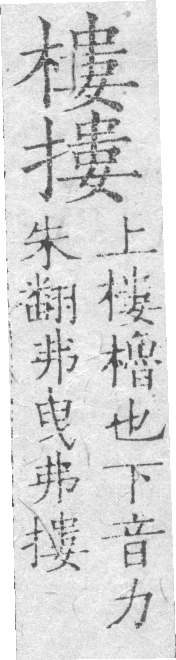 樓摟
上樓櫓也下音力
朱翻弗曳弗摟